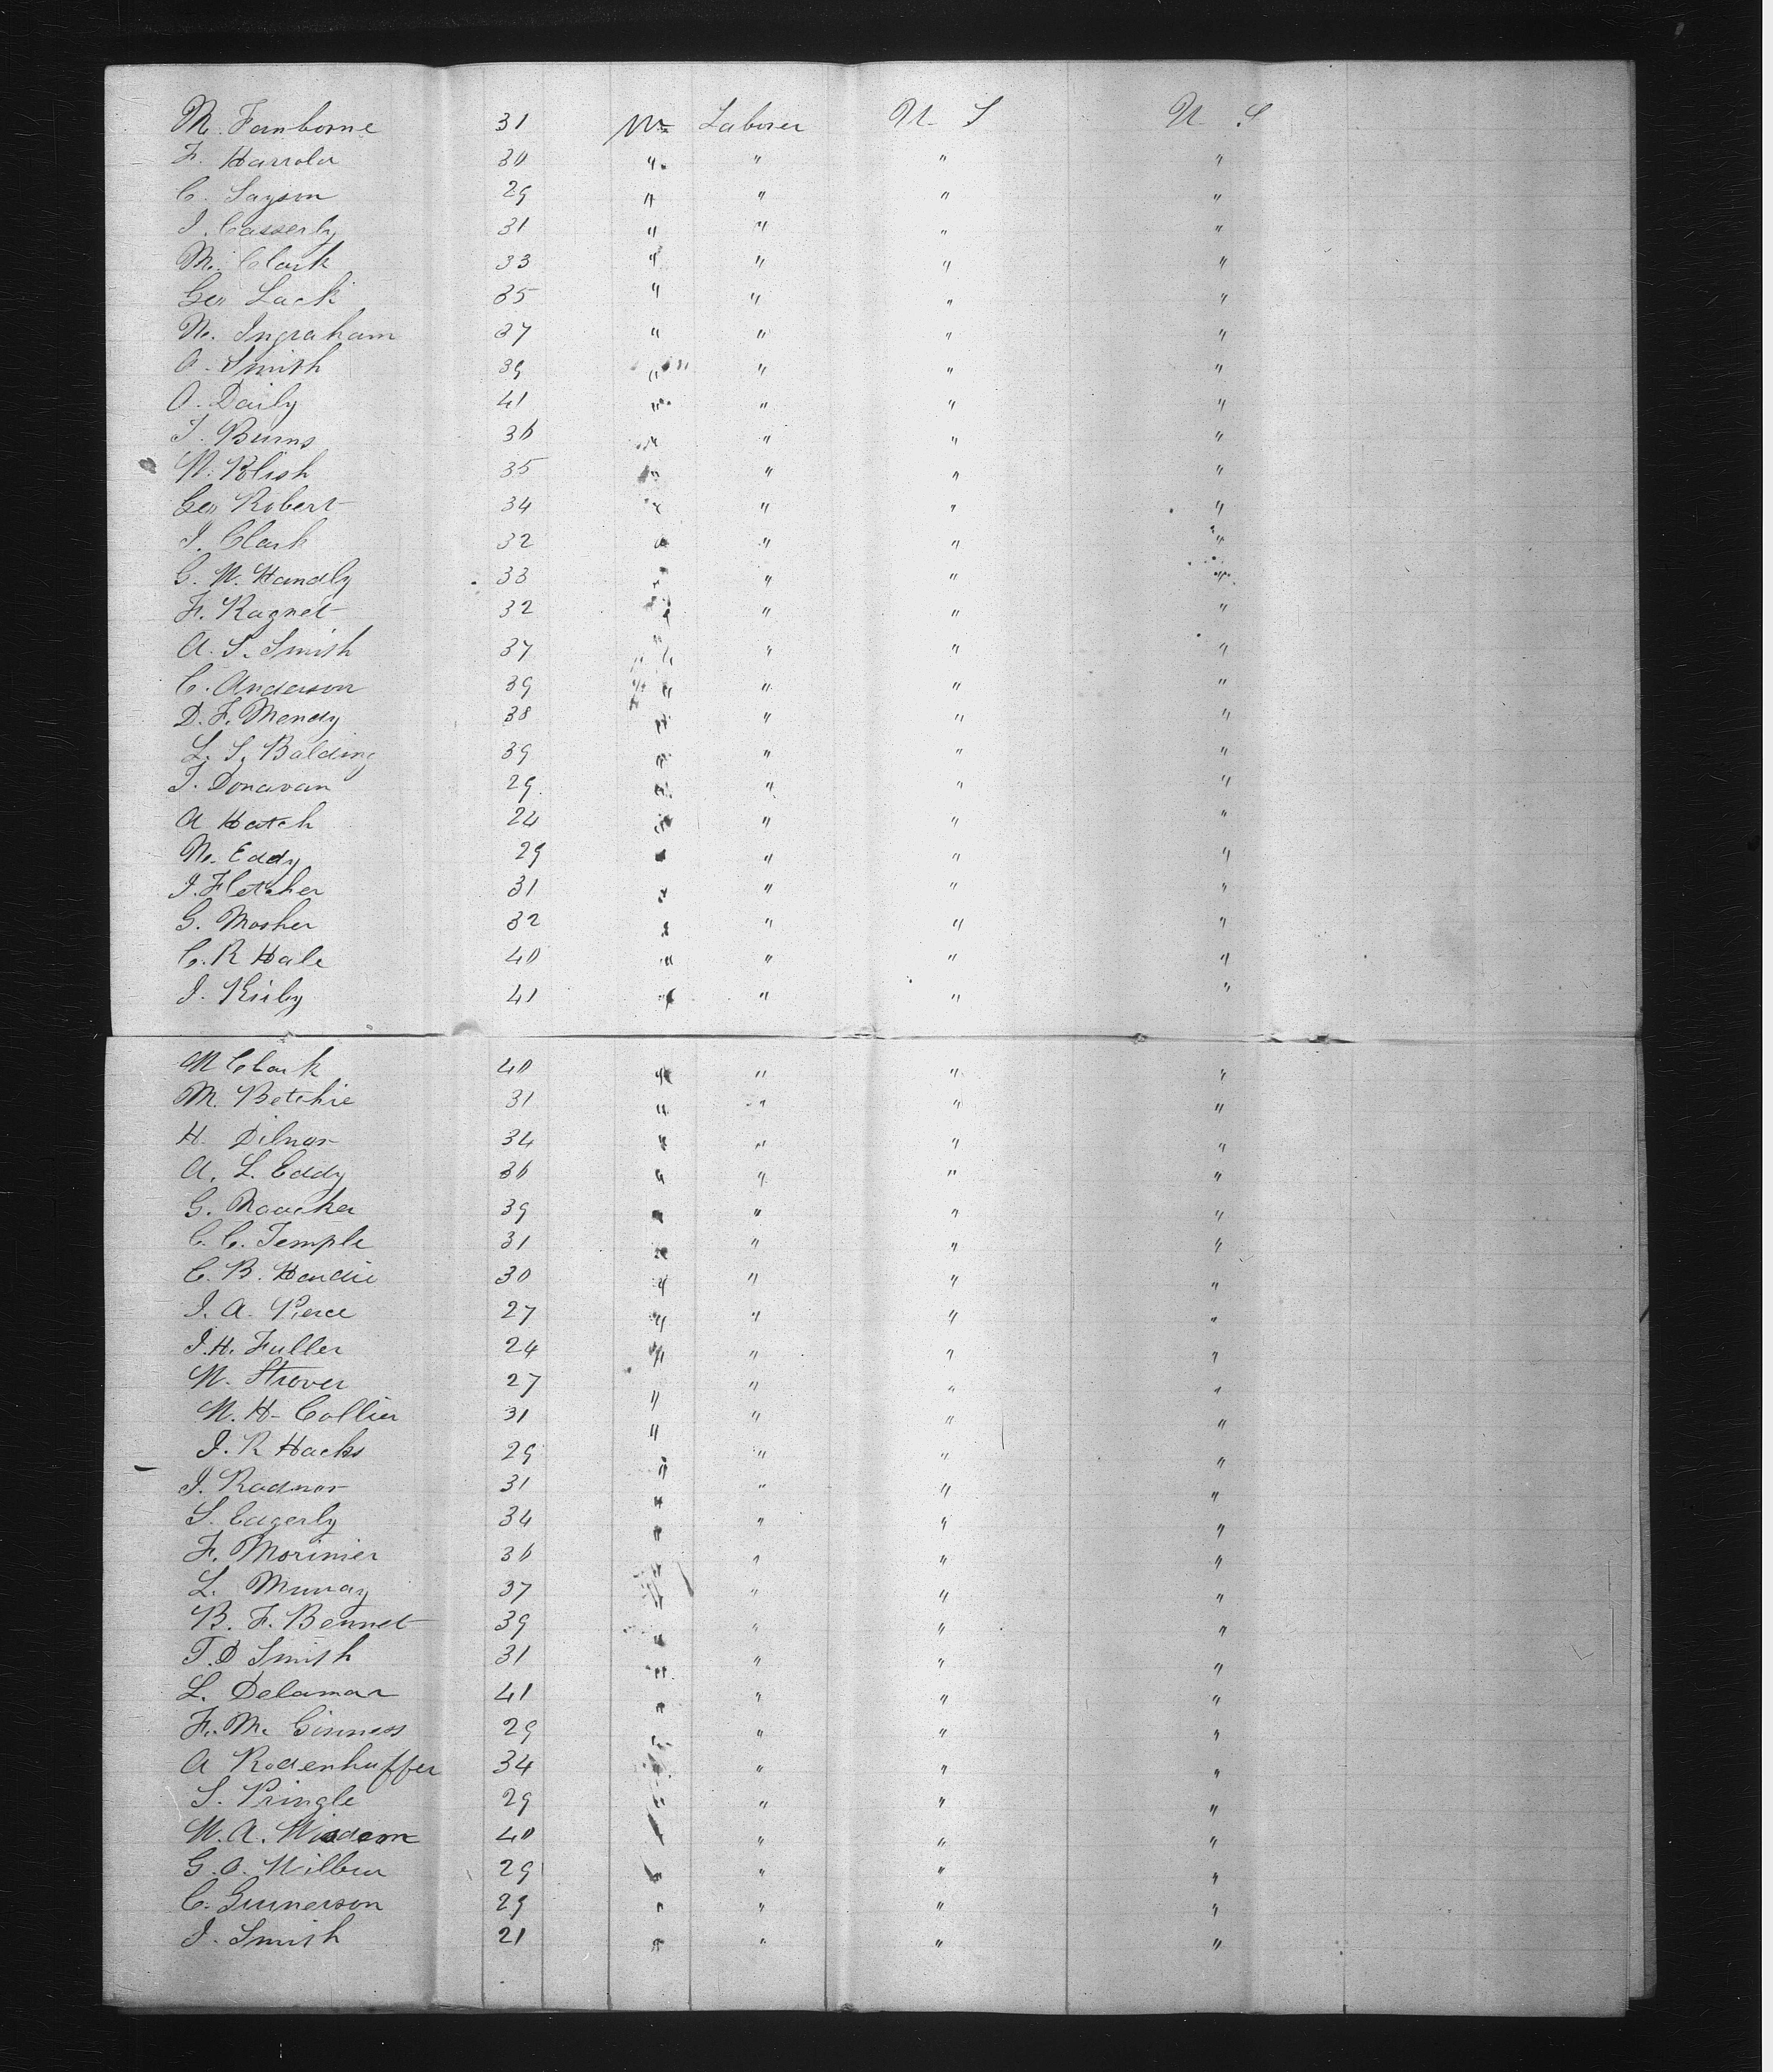 M. Famborne 31 M Laborer U. S U. S
F. Harrold 30 " " " "
C. Layson 29 " " " "
J. Casserly 31 " " " "
M. Clark 33 " " " "
Geo Lack 35 " " " "
W. Ingraham 37 " " " "
A. Smith 39 " " " "
O. Daily 41 " " " "
T. Burns 36 " " " "
W. Blish 35 " " " "
Geo Robert 34 " " " "
J. Clark 32 " " " "
G. W. Handly 33 " " " "
F. Ragnet 32 " " " "
A. S. Smith 37 " " " "
C. Anderson 39 " " " "
D. F. Mendy 38 " " " "
L. S. Balding 39 " " " "
T. Donavan 29 " " " "
A Hatch 24 " " " "
W. Eddy 29 " " " "
J. Fletcher 31 " " " "
G. Mosher 32 " " " "
C. R Hale 40 " " " "
J. Kirby 41 " " " "
M Clark 40 " " " "
M. Betchie 31 " " " "
H. Dilnor 34 " " " "
A. L. Eddy 36 " " " "
G. 39 " " " "
C. C. Temple 31 " " " "
C. B. Hardie 30 " " " "
J. A. Pierce 27 " " " "
J. H. Fuller 24 " " " "
W. Strover 27 " " " "
W. H. Collier 31 " " " "
J. R Hacks 29 " " " "
J. Radnor 31 " " " "
S. Edgerly 34 " " " "
F. Morinier 36 " " " "
L. Murray 37 " " " "
B. F. Bennet 39 " " " "
T. D Smith 31 " " " "
L. Delamar 41 " " " "
F. Mc Ginness 29 " " " "
A Rodenhuffer 34 " " " "
S. Pringle 29 " " " "
W. A. Wisdom 40 " " " "
G. O. Wilbur 29 " " " "
C. Gunnerson 29 " " " "
J. Smith 21 " " " "